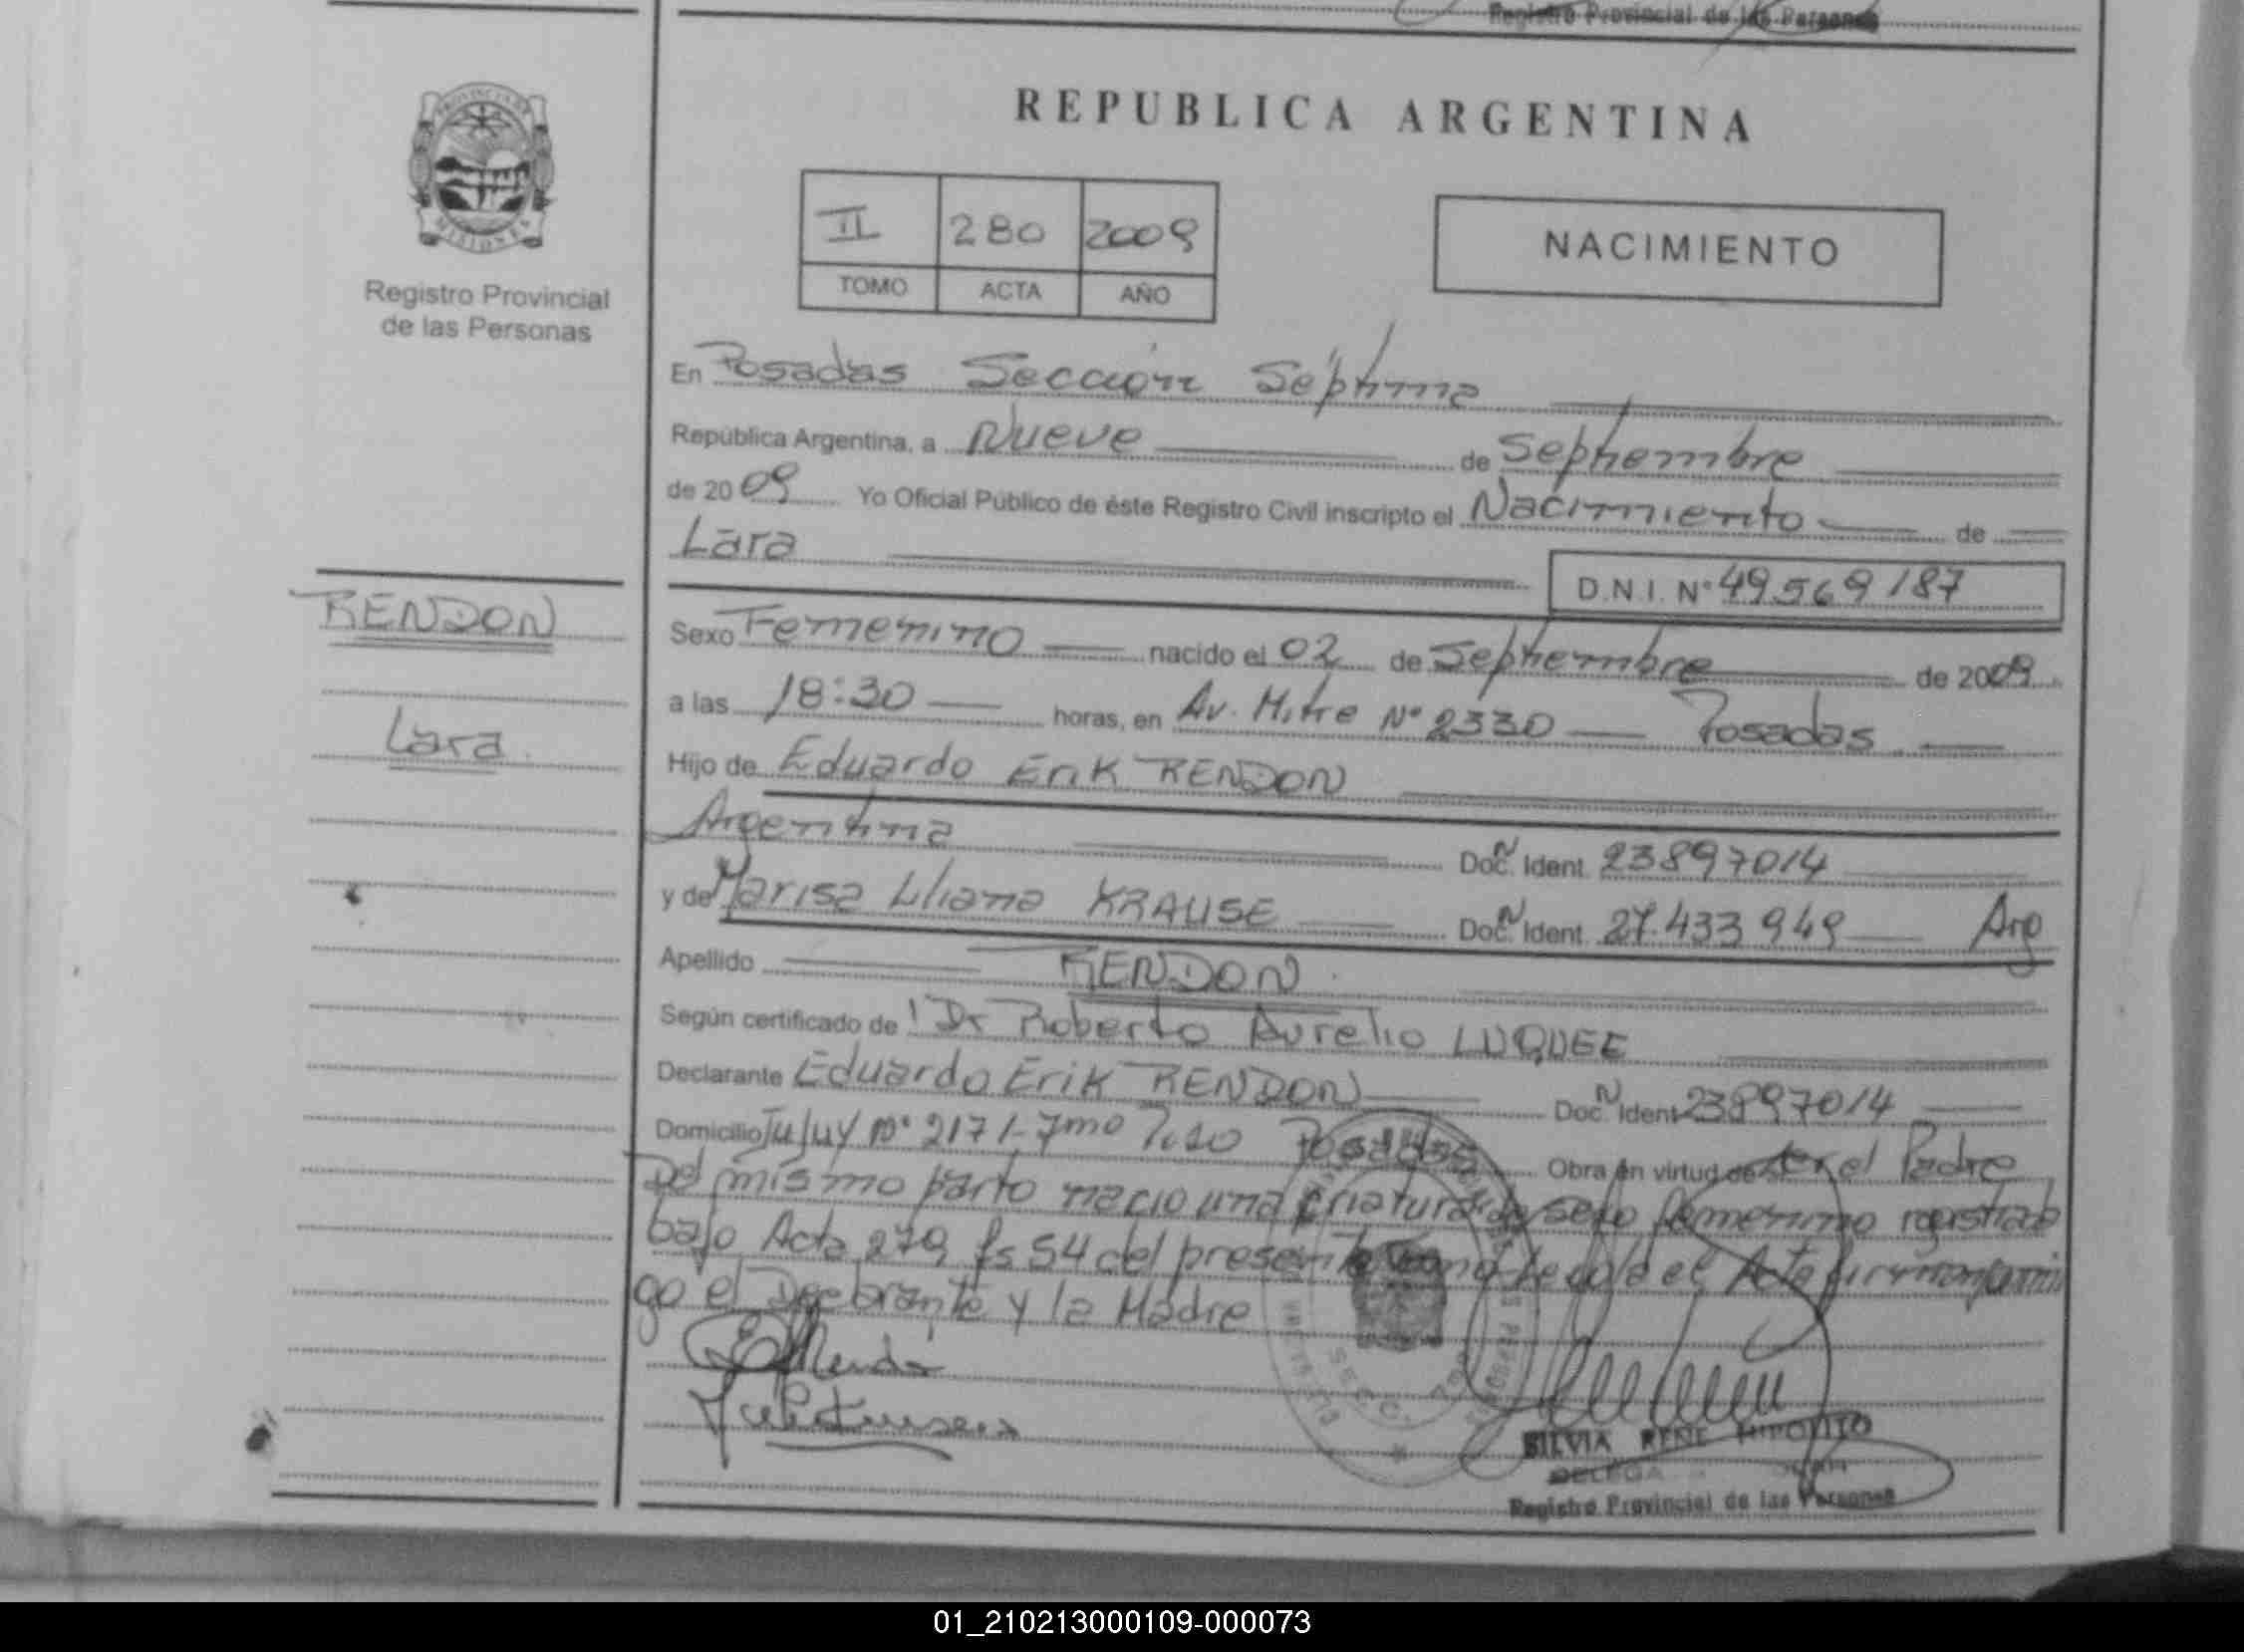 Registro Provincial de las Personas
PROVINCIA DE
MISIONES
Registro Provincial
de las Personas
REPUBLICA ARGENTINA
II 280 2009
TOMO ACTA AÑO
NACIMIENTO
En Posadas Sección Séptima
República Argentina, a Nueve de Septiembre
de 2009 Yo Oficial Público de éste Registro Civil inscripto el Nacimiento de
Lara
D.N.I. Nº 49.569.187
RENDON
Lara
Sexo Femenino nacido el 02 de Septiembre de 2009
a las 18:30 horas, en Av. Mitre Nº 2330 Posadas
Hijo de Eduardo Erik RENDON
Argentina Doc. Ident. 23897014
y de Marisa Liliana KRAUSE Doc. Ident. 27.433.949 Arg
Apellido RENDON
Según certificado de Dr Roberto Aurelio LUQUEE
Declarante Eduardo Erik RENDON Doc. Ident 23897014
Domicilio Jujuy Nº 2171-7mo Piso Posadas Obra en virtud de ser el Padre
Del mismo parto nacio una criatura de sexo femenino registrada
bajo Acta 279 fs 54 del presente tomo Leida el Acta firman conmi
go el Declarante y la Madre
SILVIA RENE HIPOLITO
Registro Provincial de las Personas
01_210213000109-000073